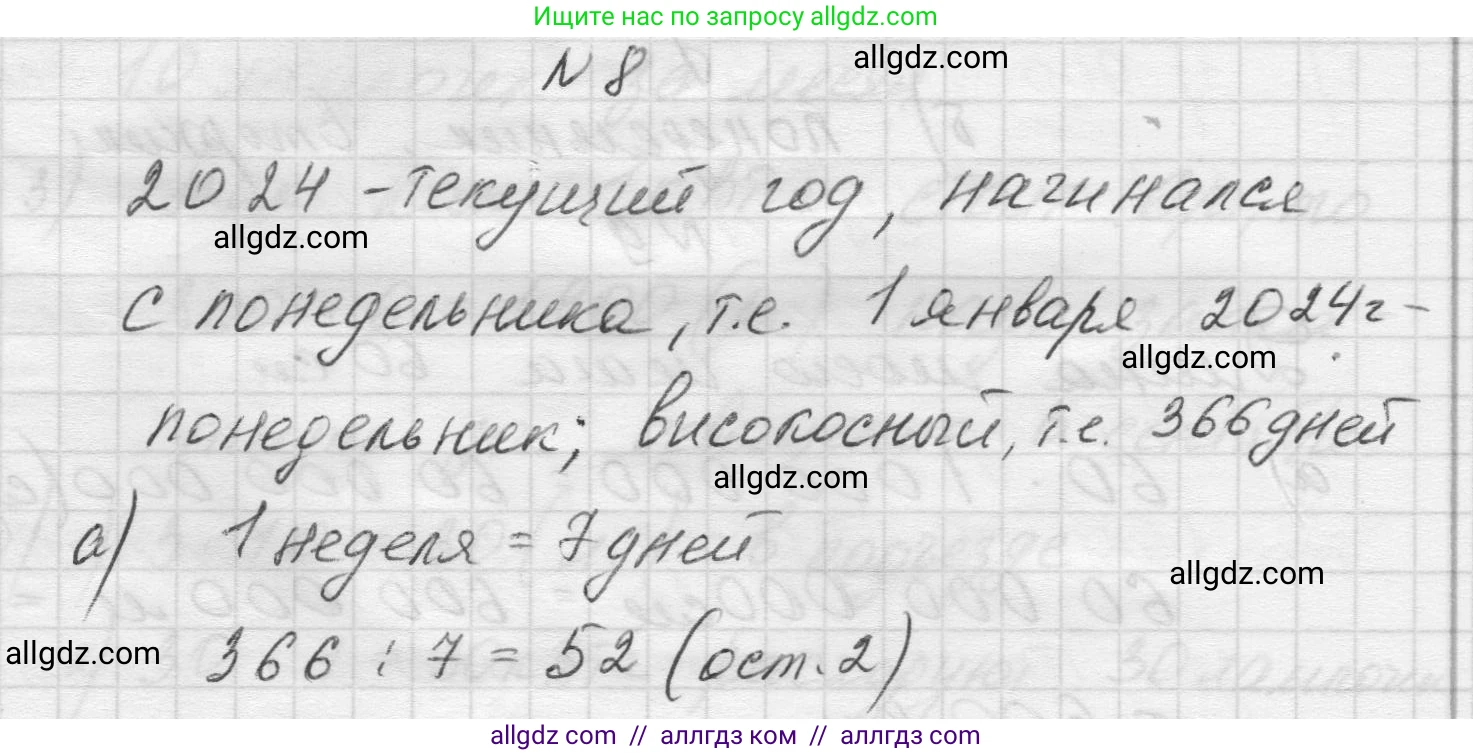 Ищите нас по запросу allgdz.com
N 8
allgdz.com
2024 - текущий год, начинался
allgdz.com
с понедельника, т.е. 1 января 2024г -
allgdz.com
понедельник; високосный, т.е. 366 дней
allgdz.com
а) 1 неделя = 7 дней
allgdz.com
allgdz.com
366 : 7 = 52 (ост. 2)
allgdz com // аллгдз ком // аллгдз com